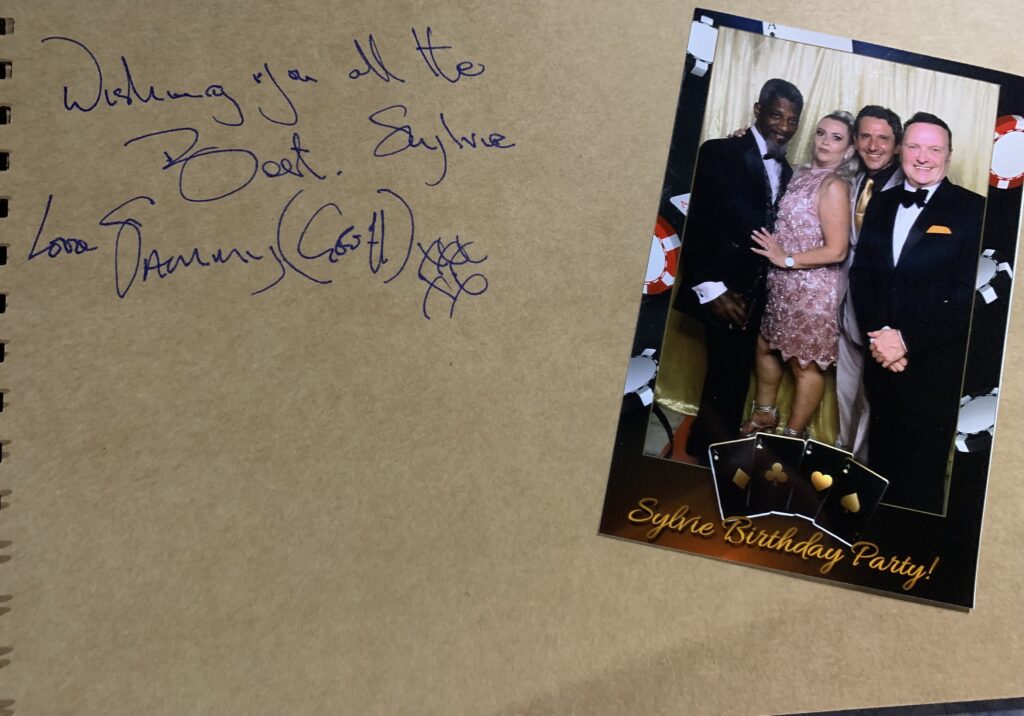 Wishing you all the
Best. Sylvie
Love Sammy (Geoff) xxx
xx
Sylvie Birthday Party!